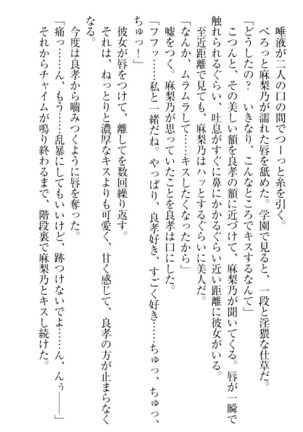 唾液が二人の口の間でつーっと糸を引く。
ぺろっと麻梨乃が濡れた唇を舐めた。学園で見ると、一段と淫猥な仕草だ。
「どうしたの？　いきなり、こんなところでキスするなんて」
こつんと、その美しい額を良孝の額に近づけて、麻梨乃が聞いてくる。唇が一瞬で
触れられるぐらい、吐息がすぐに鼻にかかるぐらい近い距離に彼女がいる。
至近距離で見ても、麻梨乃はハッとするぐらいに美人だ。
「なんか、ムラムラして……キスしたくなったから」
嘘をつく。麻梨乃が思っていたことを良孝は口にした。
「フフッ……私と一緒だね。やっぱり、良孝好き、すごく好き……ちゅっ、ちゅっ、
ちゅっ！」
彼女が唇をつけて、離してを数回繰り返す。
それは、ねっとりと濃厚なキスよりも可愛く、甘く感じて、良孝の方が止まらなく
なる。
今度は良孝から嚙みつくように唇を奪った。
「痛っ……ん、もう……乱暴にしてもいいけど、跡つけないでよ……ん、んぅ――」
それからチャイムが鳴り終わるまで、階段裏で麻梨乃とキスし続けた。